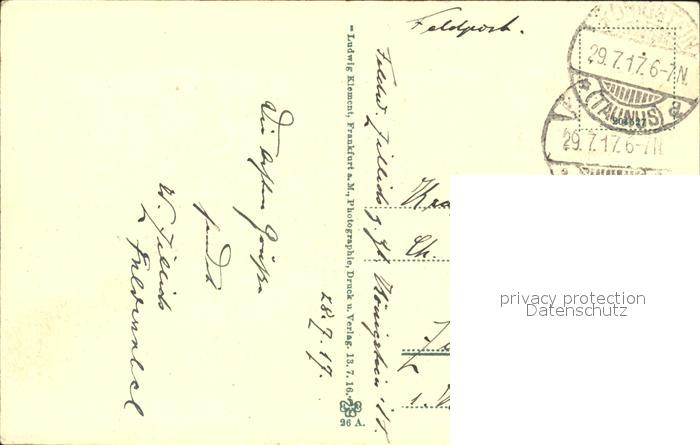 Feldpost.
29.7.17.6-7N.
(TAUNUS)
a
29.7.17.6-7N
Feldw. Zillich z. Zt. Königstein i/T.
Ch.
privacy protection
Datenschutz
28.7.17.
Die besten Grüße
sendet
W. Zillich
Feldwebel
Ludwig Klement, Frankfurt a. M., Photographie, Druck u. Verlag. 13. 7. 16.
26 A.